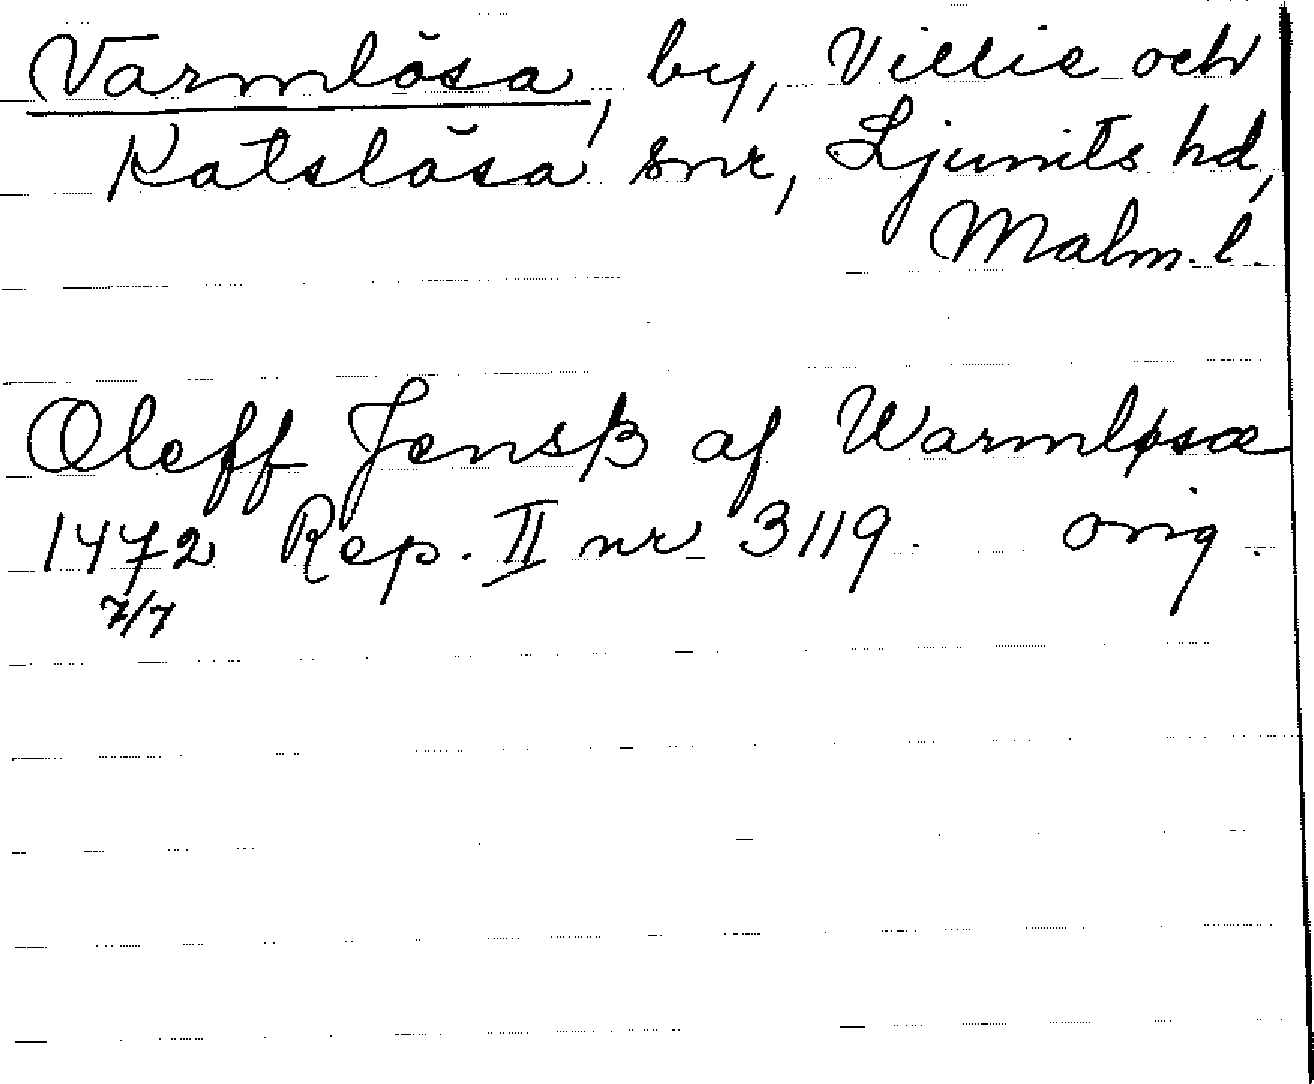 Varmlösa, by, Villie och
Katslösa snr, Ljunits hd,
Malm. l.
Oleff Jensß af Warmløsæ
1472 Rep. II nr 3119. orig.
7/7